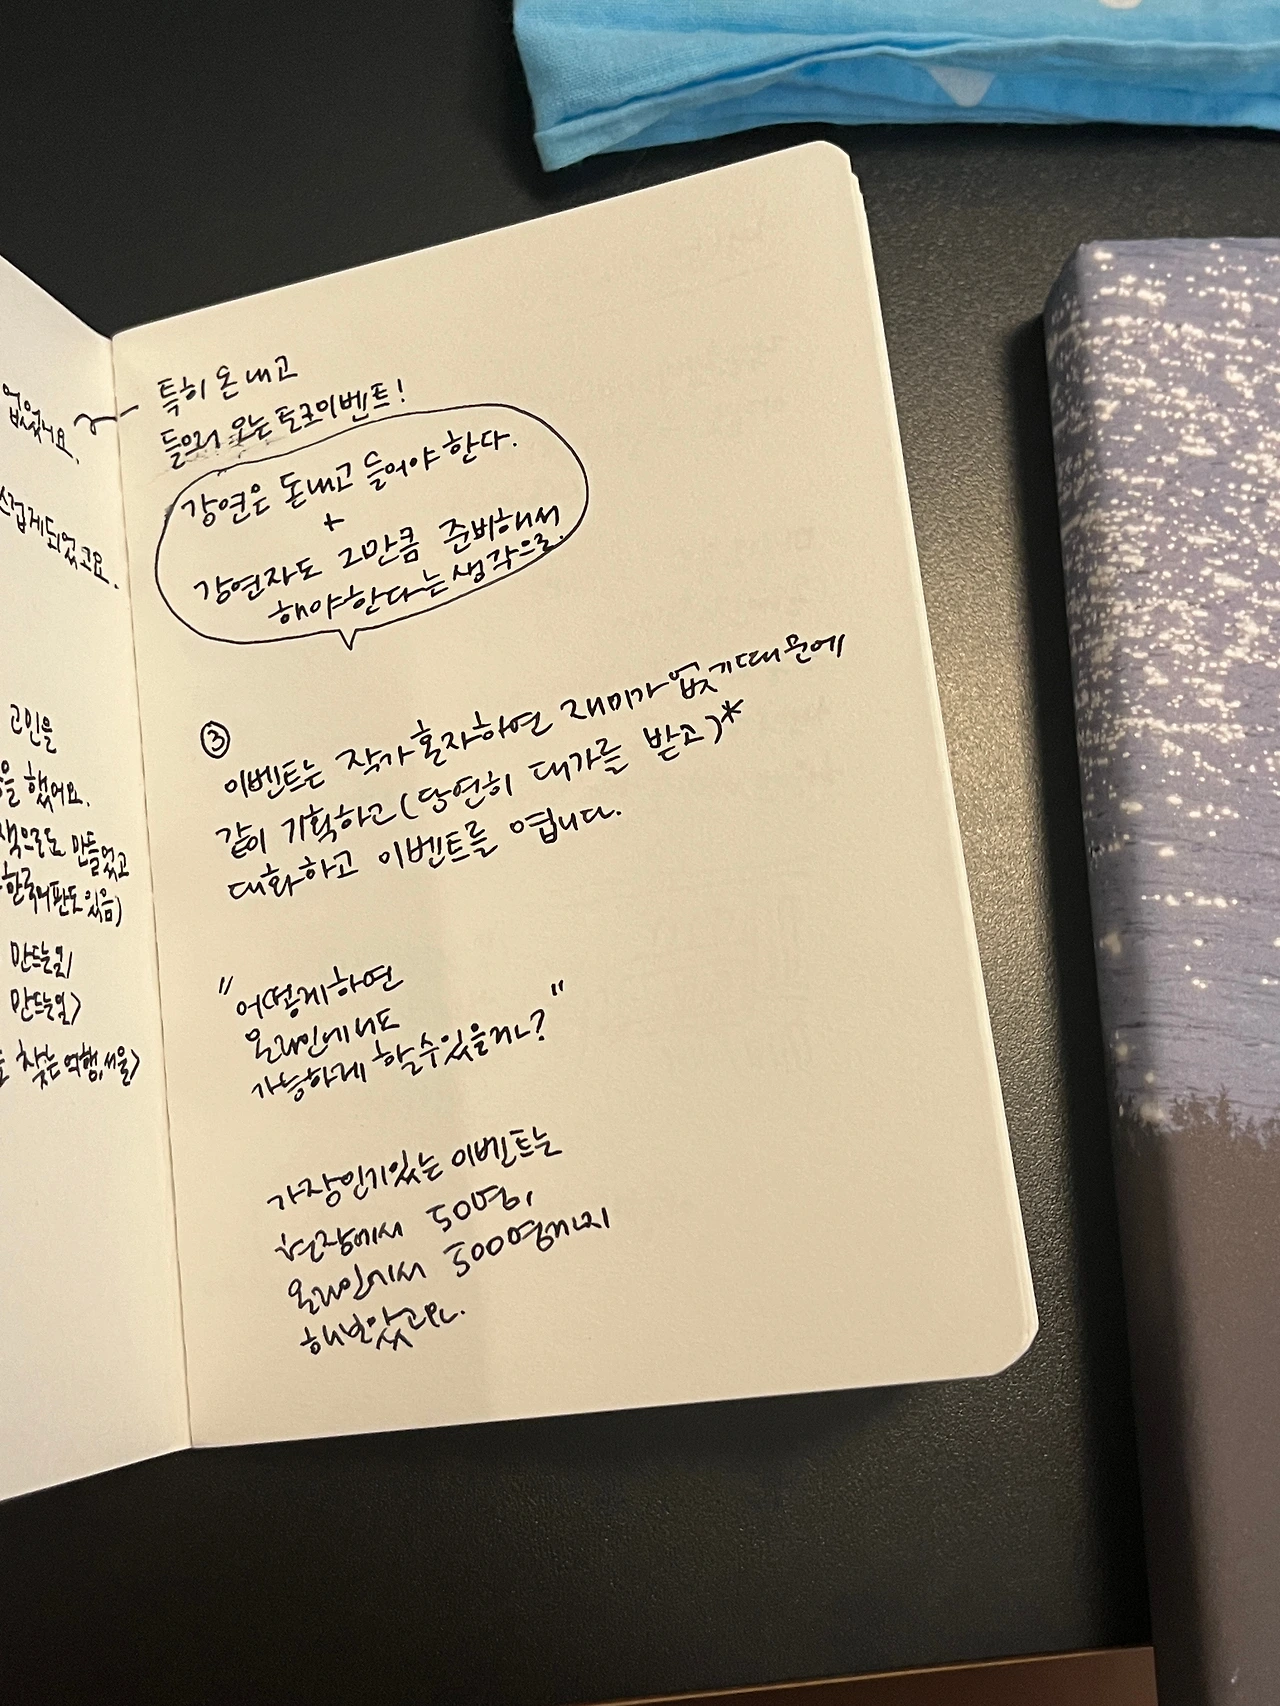 없었어요.
스럽게 되었고요.
고민을
을 했어요.
색으로도 만들었고
한국어판도 있음)
만드는 일
만드는 일>
찾는 여행, 서울>
특히 돈 내고
들으러 오는 토크이벤트!
강연은 돈내고 들어야 한다.
+
강연자도 그만큼 준비해서
해야 한다는 생각으로.
③
이벤트는 작가 혼자하면 재미가 없기 때문에
같이 기획하고 (당연히 대가를 받고)*
대화하고 이벤트를 엽니다.
"어떻게하면
온라인에서도
가능하게 할 수 있을까?"
가장 인기있는 이벤트는
현장에서 50명,
온라인에서 500명까지
해보았고요.